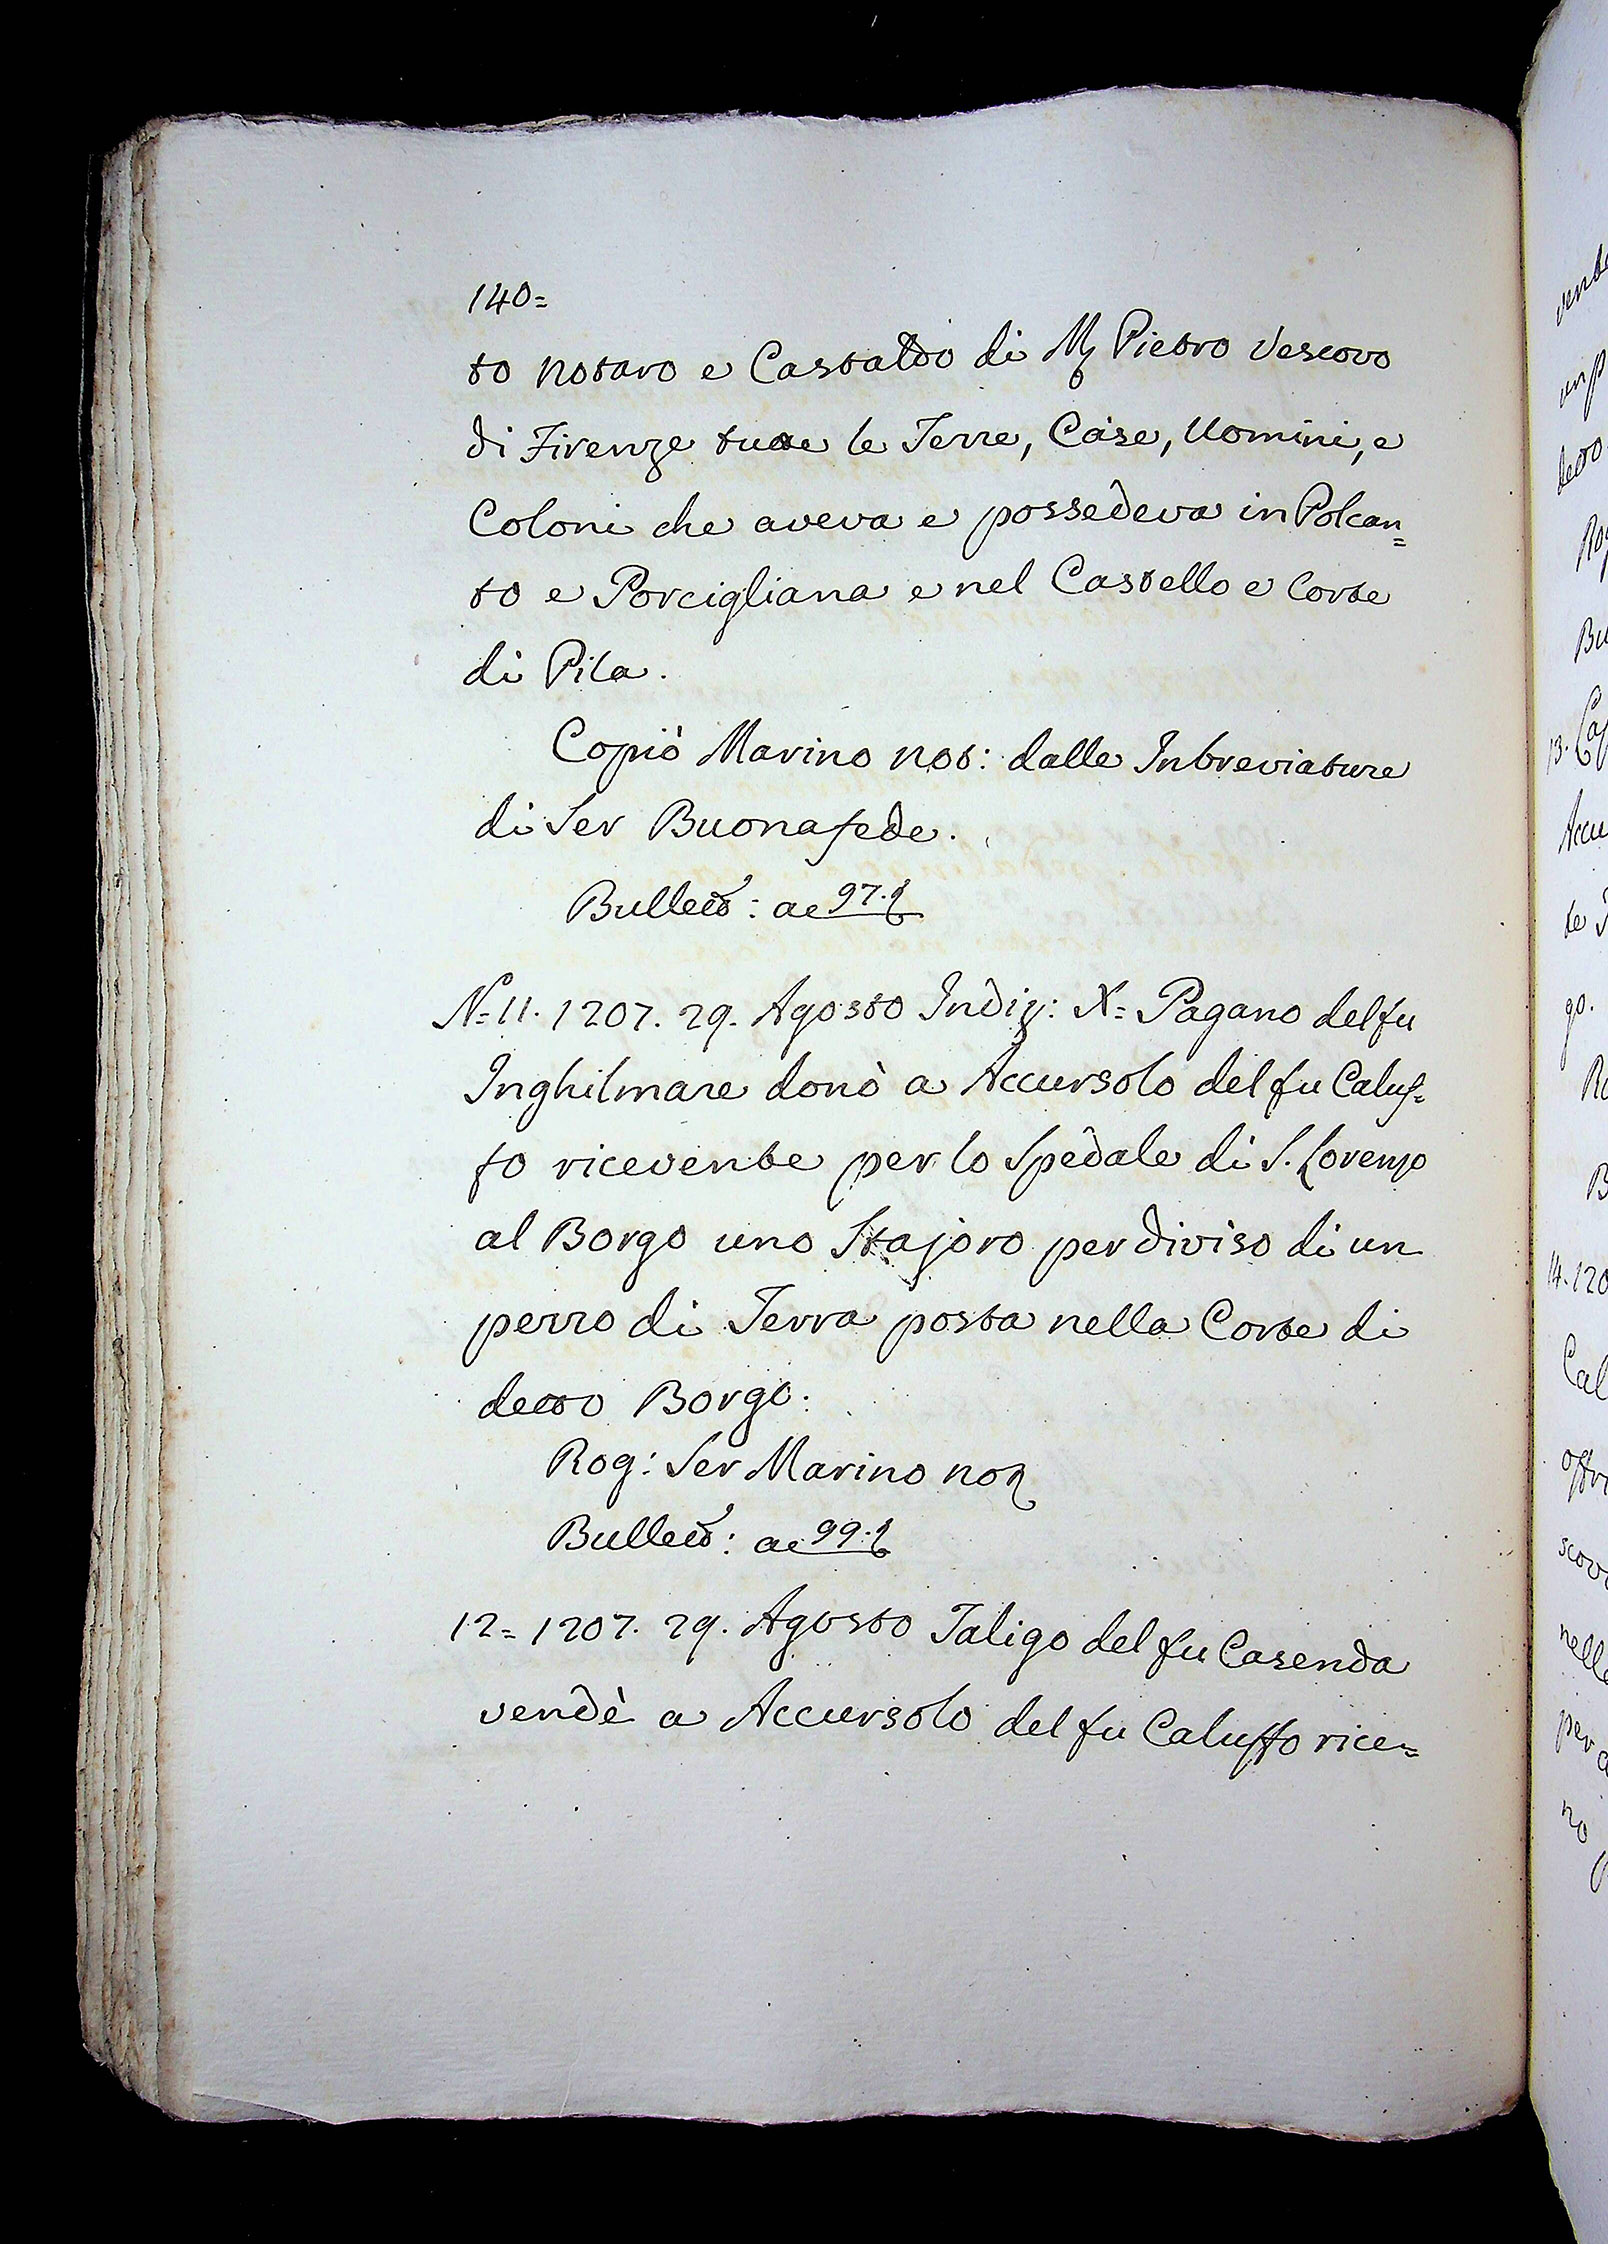 140=
to Notaro e Castaldo di M. Pietro Vescovo
di Firenze tutte le Terre, Case, Uomini, e
Coloni che aveva e possedeva in Polcan=
to e Porcigliana e nel Castello e Corte
di Pila.
Copiò Marino not: dalle Inbreviature
di Ser Buonafede.
Bullett: ac 97.
N=11. 1207. 29. Agosto Indiz: X= Pagano del fu
Inghilmare donò a Accursolo del fu Caluf=
fo ricevente per lo Spedale di S. Lorenzo
al Borgo uno Stajoro perdiviso di un
pezzo di Terra posta nella Corte di
detto Borgo:
Rog: Ser Marino not
Bullett: ac 99.
12= 1207. 29. Agosto Taligo del fu Casenda
vendè a Accursolo del fu Caluffo rice=
detto
Accu
go.
13.
14. 120
Cal
nella
per
no